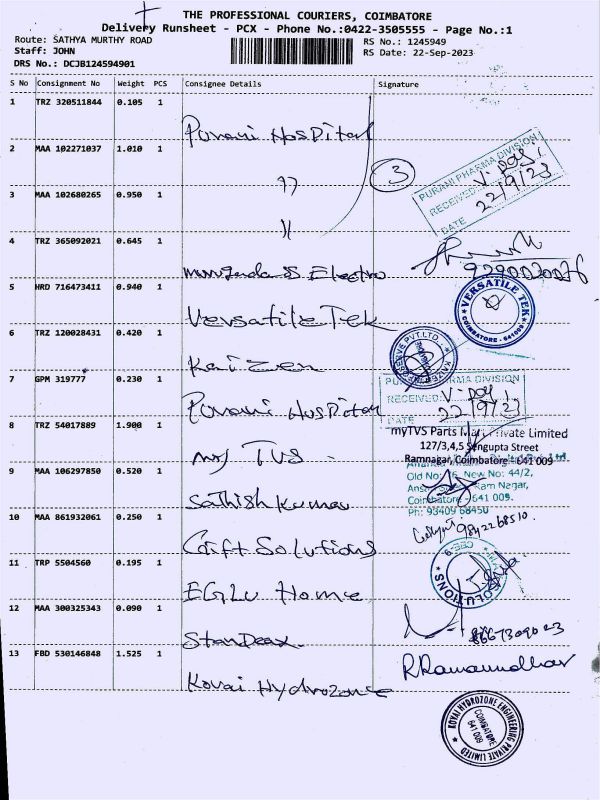 THE PROFESSIONAL COURIERS, COIMBATORE
Delivery Runsheet - PCX - Phone No.:0422-3505555 - Page No.:1
Route: SATHYA MURTHY ROAD
RS No.: 1245949
Staff: JOHN
RS Date: 22-Sep-2023
DRS No.: DCJB124594901
S No Consignment No Weight PCS Consignee Details Signature
1 TRZ 320511844 0.105 1
Purani Hospital
2 MAA 102271037 1.010 1
"
3
PURANI PHARMA DIVISION
RECEIVED
22/9/23
DATE
3 MAA 102680265 0.950 1
"
4 TRZ 365092021 0.645 1
Electro
9290020076
5 HRD 716473411 0.940 1
Versatile Tek
VERSATILE TEK
COIMBATORE - 641009
6 TRZ 120028431 0.420 1
Kaizen
7 GPM 319777 0.230 1
Purani Hospital
PURANI PHARMA DIVISION
RECEIVED
22/9/23
DATE
8 TRZ 54017889 1.900 1
my TVS
myTVS Parts Private Limited
127/3,4,5 Sengupta Street
Ramnagar, Coimbatore - 641 009
9 MAA 106297850 0.520 1
Sathish Kumar
Old No: New No: 44/2,
Ram Nagar,
Coimbatore - 641 009.
Ph: 93409 68450
9842268510
10 MAA 861932061 0.250 1
Solutions
SOLUTIONS
CBE-9
11 TRP 5504560 0.195 1
EGLU Home
12 MAA 300325343 0.090 1
8667309023
13 FBD 530146848 1.525 1
Kovai Hydrozone
KOVAI HYDROZONE ENGINEERING PRIVATE LIMITED
COIMBATORE
641 009